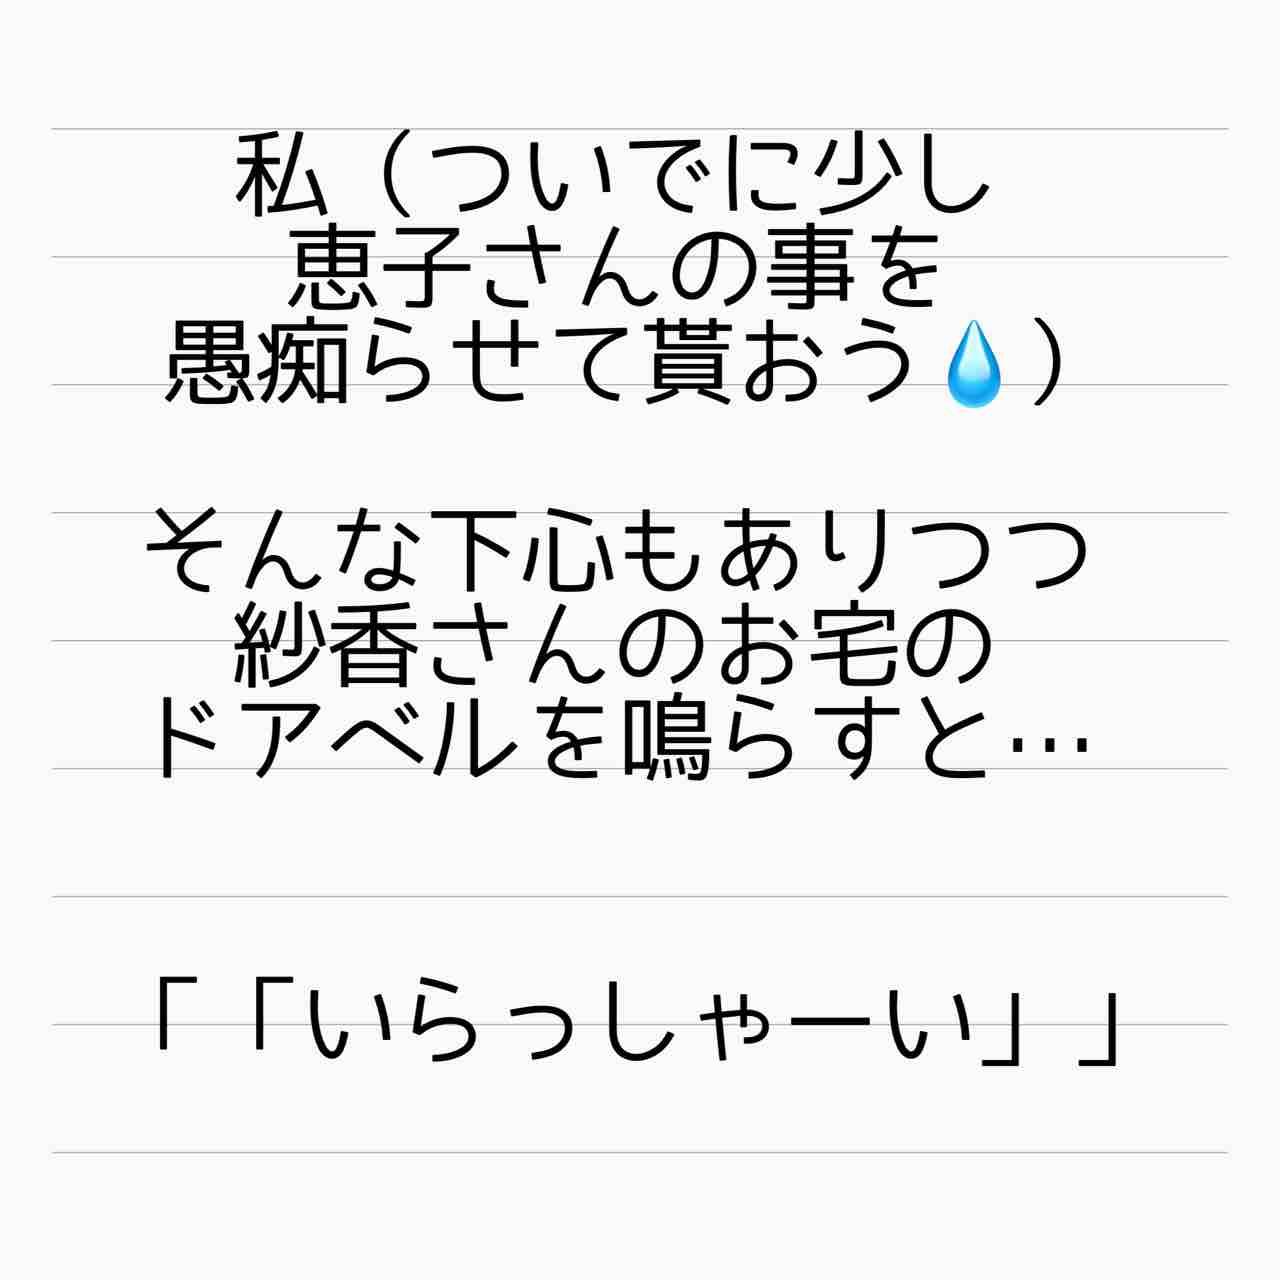 私（ついでに少し
恵子さんの事を
愚痴らせて貰おう💧）
そんな下心もありつつ
紗香さんのお宅の
ドアベルを鳴らすと…
「「いらっしゃーい」」